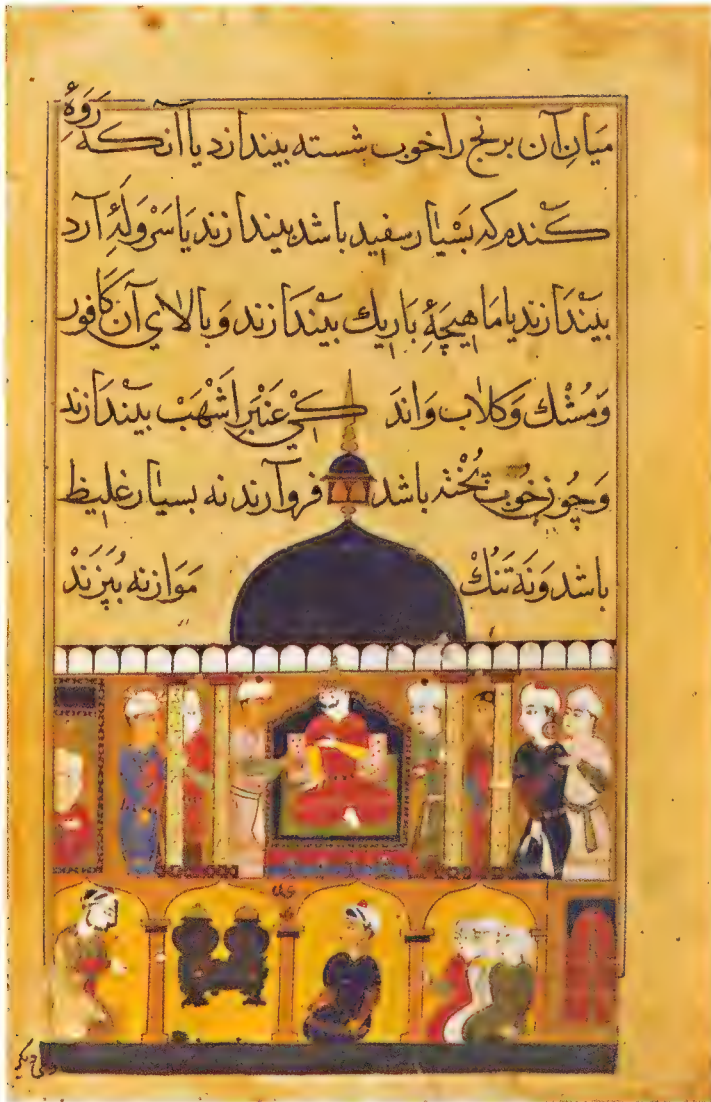 میانِ آن برنج را خوب شسته بیندازد یا آنکه رَوَهٔ
کندم که بَسْیار سفید باشد بیندازند یا سَروَلَهٔ آرد
بیَنْدَازند یا ماهیچَهٔ باریك بینْدَازند وَبالای آن کافور
وَمُشْك وَکلاب وَاندَکی عنْبَر اشْهَبْ بینْدَازند
وَچون خُوبْ پُخْته باشد فروآرند نه بسیار غلیظ
باشد وَنَه تَنُكْ مَوازنه بُپزَند